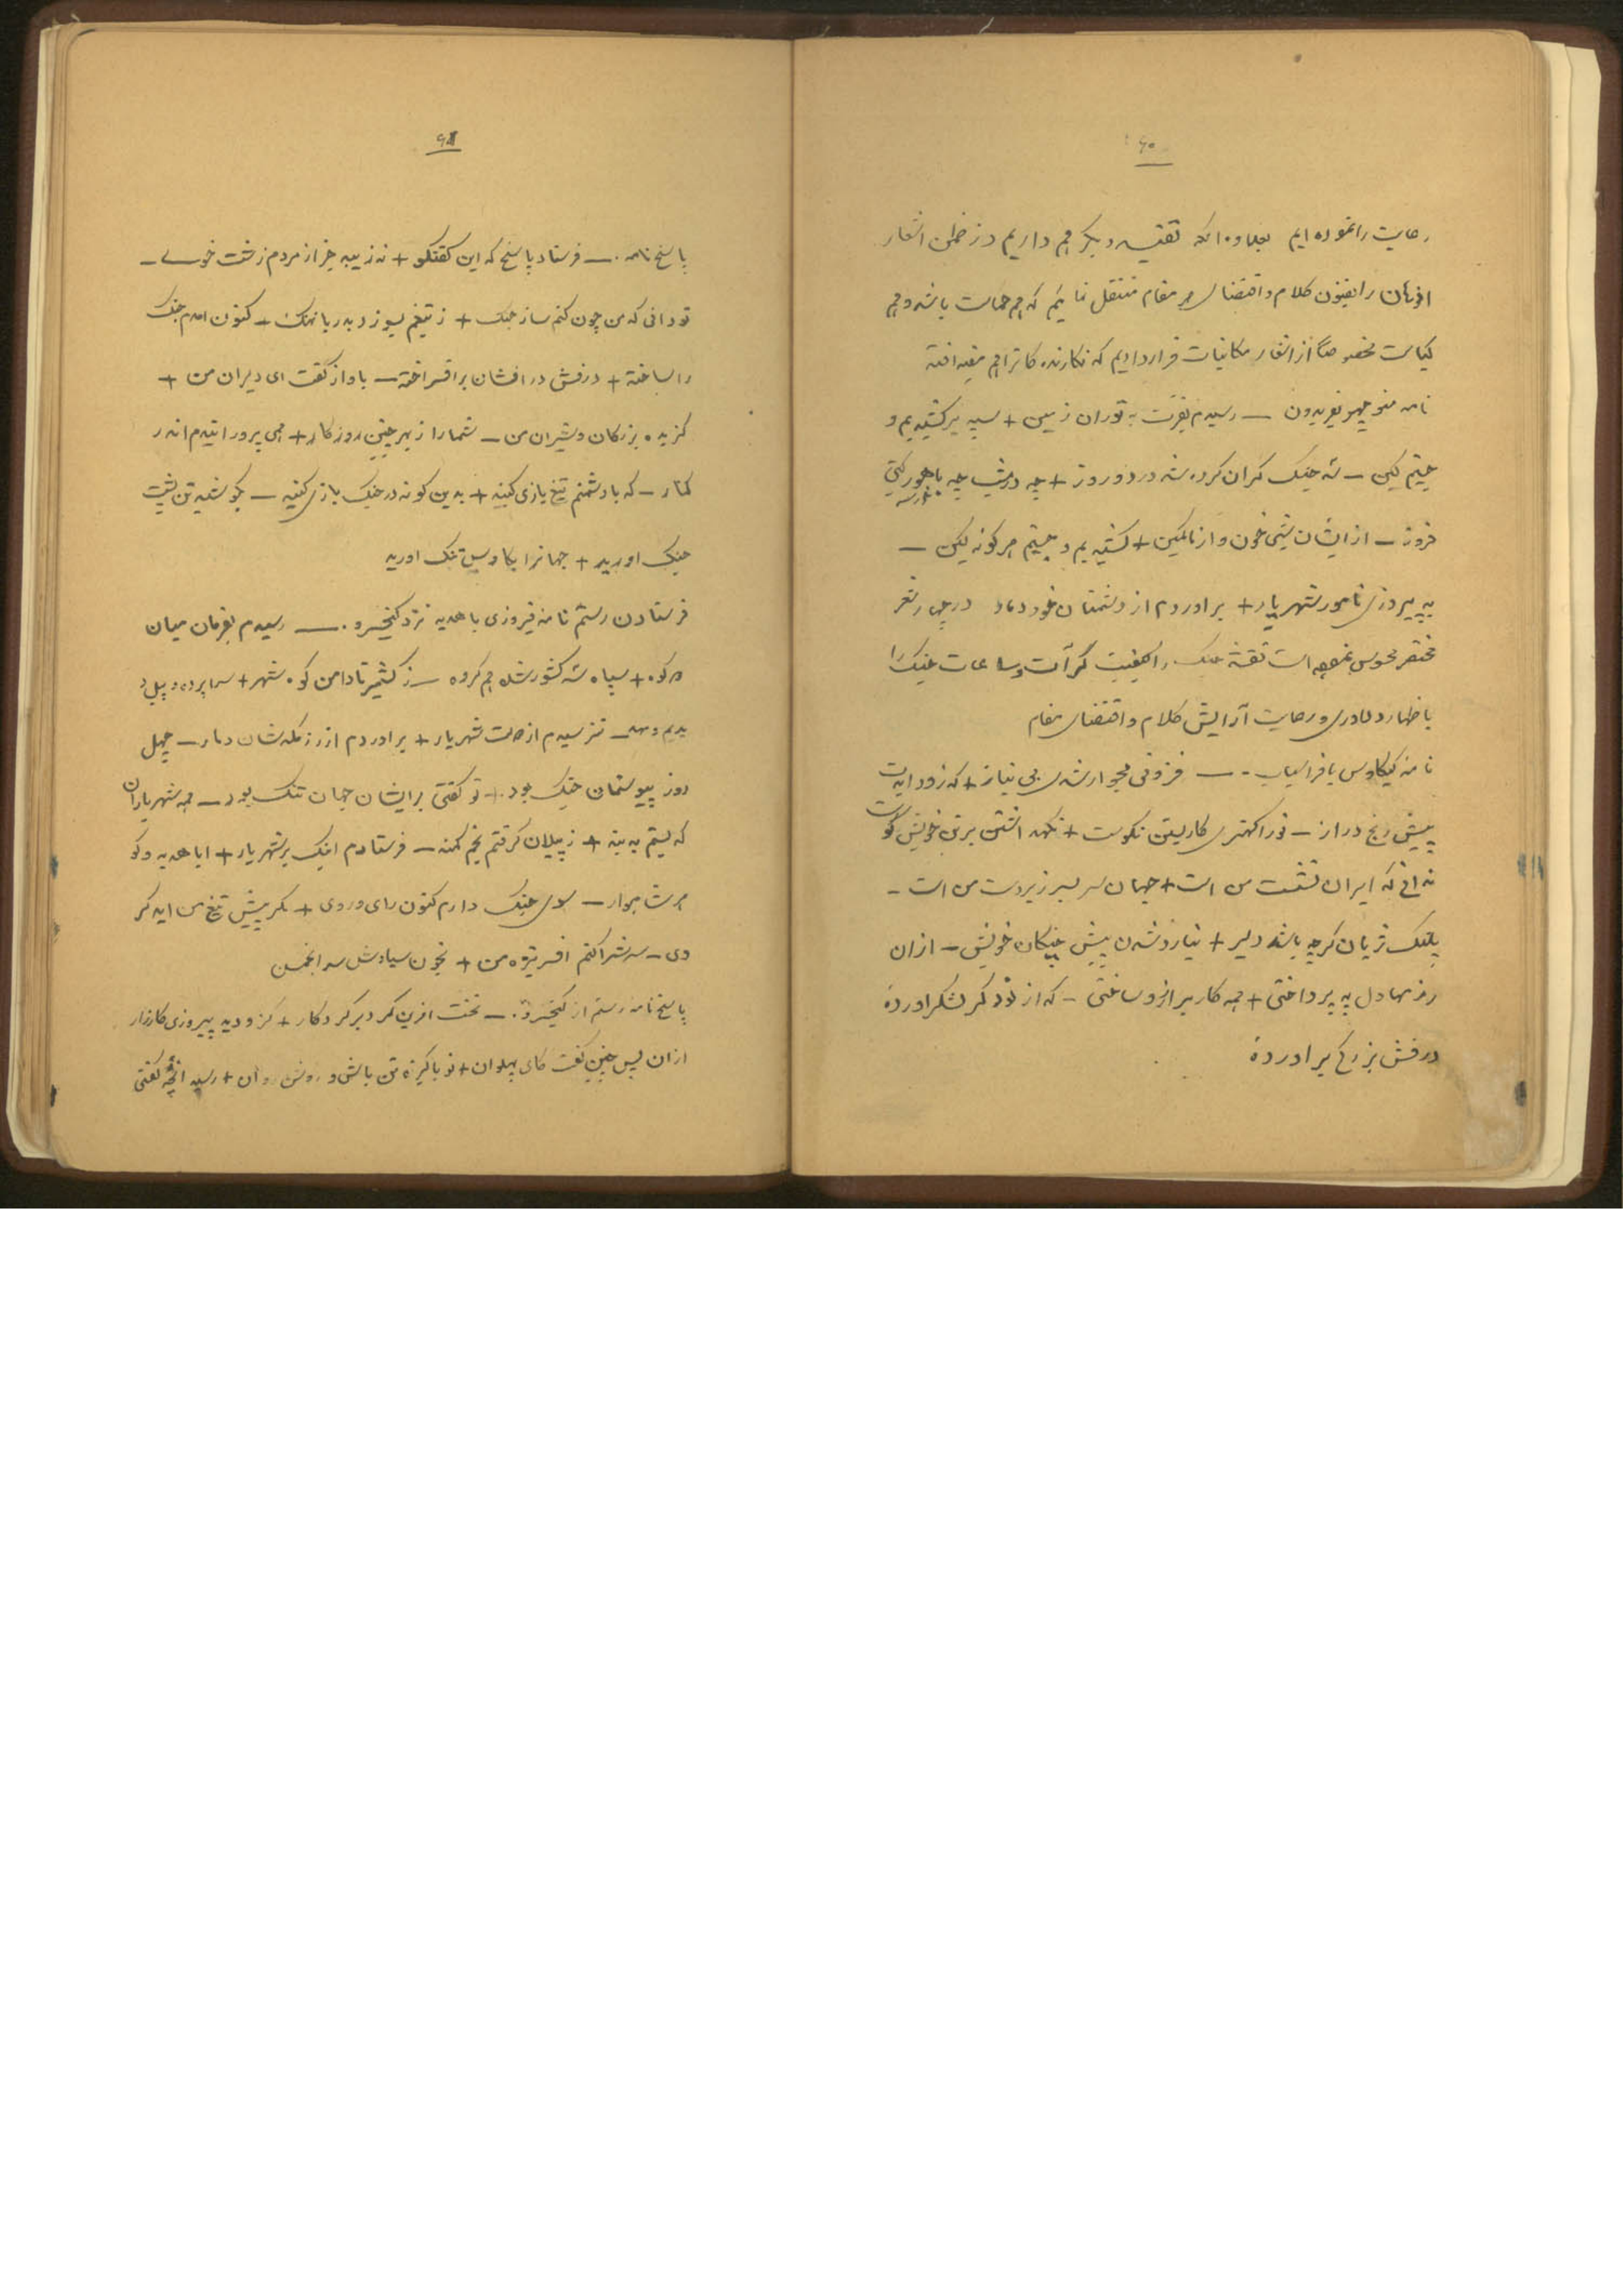 ۶۰
رعایت را نموده ایم بعلاوه انکه تقیه دیگر هم داریم در ضمن اشعار
اذهان را بفنون کلام و اقتضای هر مقام منتقل نمائیم که هم حماست باشد و هم
کیاست مخصوصاً از اشعار مکاتبات قرار دادیم که نکارنده کانرا هم مفید افتد
نامه منوچهر بفریدون – رسیدم بفرت به توران زمین + سپه بر کشیدیم و
جستیم کین – سه جنک کران کرده شد در دو روز + چه در شب چه با هور کیتی
فروز – از ایشان شبیخون و از ما کمین + کشیدیم و جستیم هر کونه کین –
به پیروزی نامور شهریار + براوردم از دشمنان خود دمار در چهار شعر
مختصر نقشه جنک را کیفیت کرات و ساعات جنک را
باظهار دلاوری و رعایت آرایش کلام و اقتضای مقام
نامه کیکاوس بافراسیاب – فزونی مجو ار شدی بی نیاز + که زود ایدت
پیش رنج دراز – ترا کهتری کار بستن نکوست + نکه داشتن بر تن خویش پوست
ندانی که ایران نشست من است + جهان سر بسر زیر دست من است –
پلنک ژیان کرچه باشد دلیر + نیارد شدن پیش چنکال شیر – ازان
رزمها دل به پرداختی + همه کار بر ارزو ساختی – که از تو دکر لشکر اورده
درفش بزرکی بر اورده
۶۱
پاسخ نامه – فرستاد پاسخ که این کفتکو + نه زیبد جز از مردم زشت خوی –
تو دانی که من چون کنم ساز جنک + ز تیغم بسوزد بدریا نهنک – کنون امدم جنک
را ساخته + درفش درافشان بر افراخته – باواز کفت ای دلیران من +
کزیده بزرکان و شیران من – شما را ز بهر چنین روزکار + همی پرورانیدم اندر
کنار – که با دشمنم تیغ بازی کنید + بدین کونه در جنک بازی کنید – بکوشید تن پشت
جنک اورید + جهانرا بکاوس تنک اورید
فرستادن رستم نامه فیروزی با هدیه نزد کیخسرو – رسیدم بفرمان میان
دو کوه + سپاه سه کشور شده هم کروه – ز کشمیر تا دامن کوه شهر + سراپرده و پیل
دیدیم و مهد – نترسیدم از دولت شهریار + براوردم از رزمکه شان دمار – چهل
روز پیوستمان جنک بود + تو کفتی بر ایشان جهان تنک بود – همه شهریاران
که بستم به بند + ز پیلان کرفتم بخم کمند – فرستادم اینک بر شهریار + ابا هدیه و
کوهر شاهوار – سوی جنک دارم کنون رای و روی + مکر پیش تیغ من اید کر
وی – سرش را کنم افسر نیزه من + بخون سیاوش سر انجمن
پاسخ نامه رستم از کیخسرو – نخست افرین کرد بر کردکار + کزو دید پیروزی کارزار
ازان پس چنین کفت کای پهلوان + تو پاکیزه تن باش و روشن روان + رسید انچه کفتی